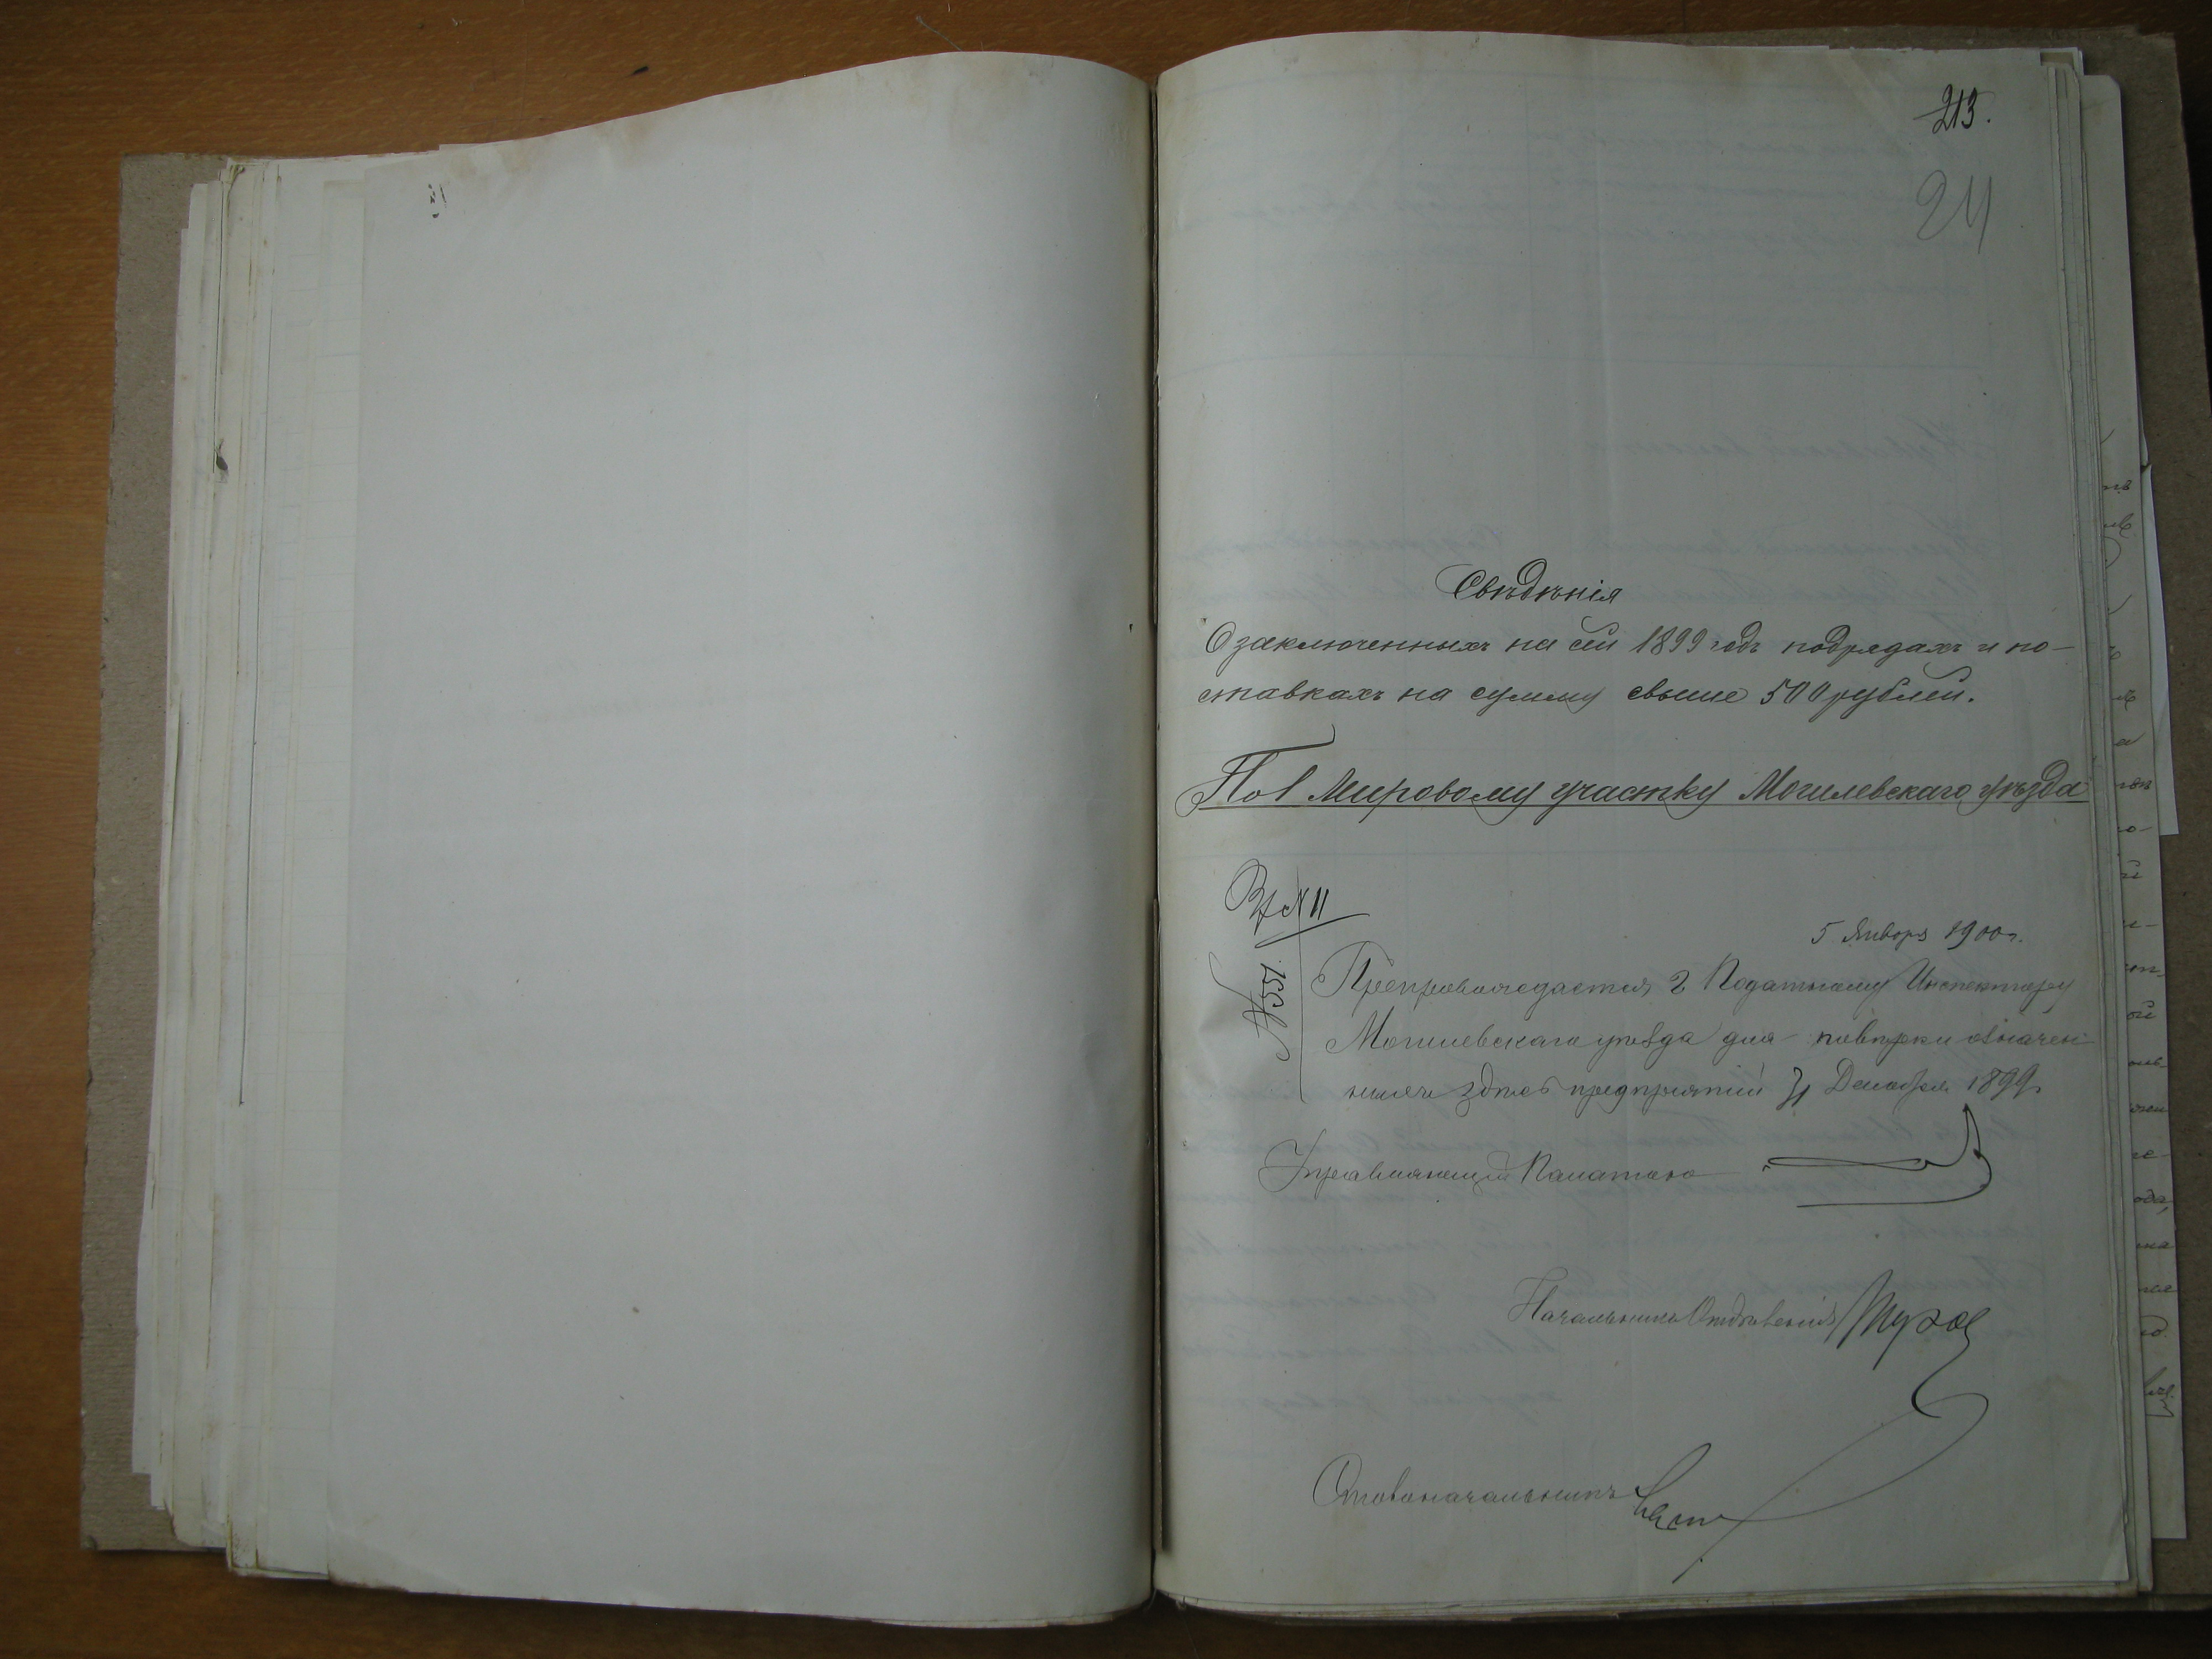 213.
24
Свѣдѣнія
О заключенныхъ на сей 1899 годъ подрядахъ и по-
ставкахъ на сумму свыше 500 рублей.
По 1 Мировому участку Могилевскаго уѣзда
№ 11
№ 551
5 Января 1900 г.
Препровождается 2 Податному Инспектору
Могилевскаго уѣзда для повѣрки означен-
ныхъ здѣсь предпріятій 31 Декабря 1899 г.
Управляющій Палатою
Начальникъ Отдѣленія
Столоначальникъ